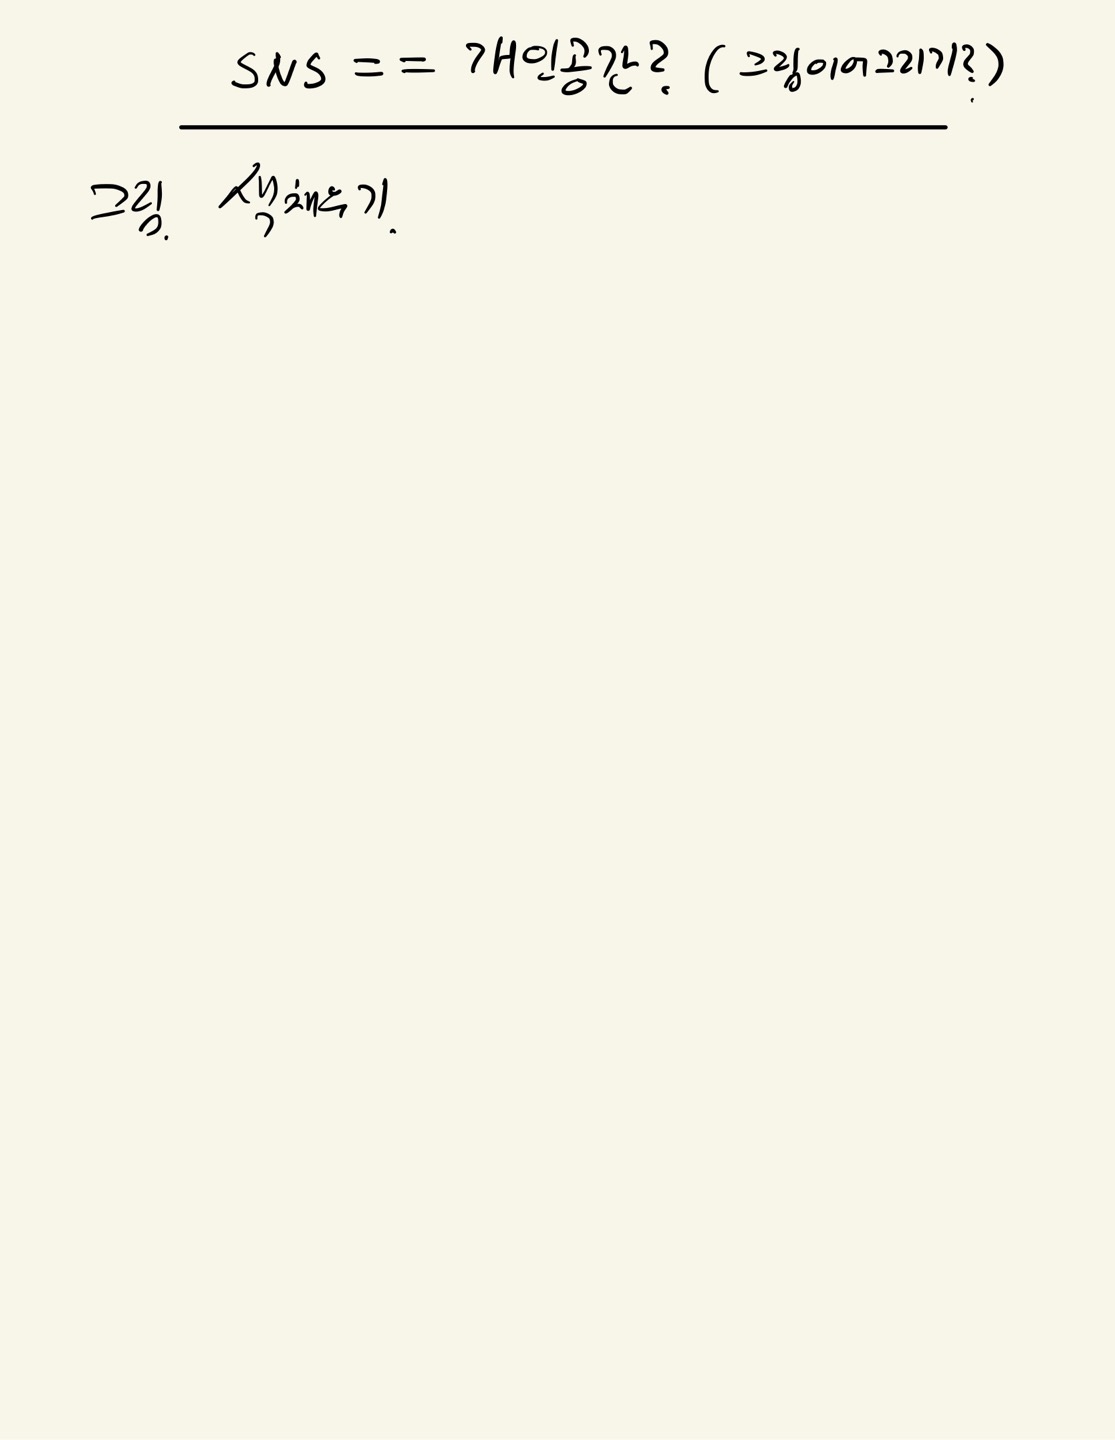 SNS == 개인공간? (그림이어그리기?)
그림. 색채우기.